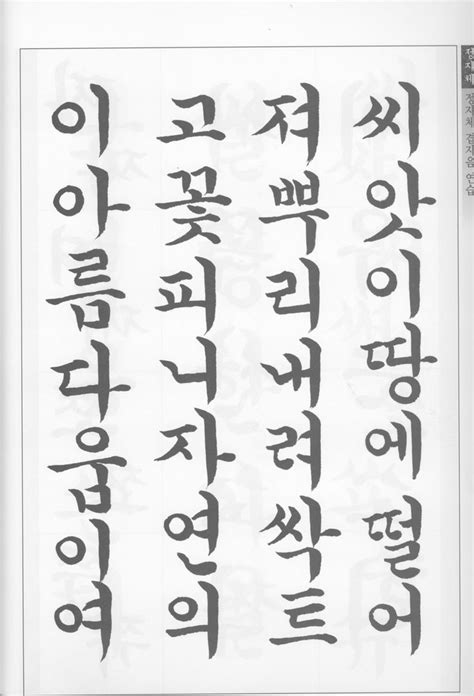 정자체 정자체 겹자음 연습
씨앗이땅에떨어
져뿌리내려싹트
고꽃피니자연의
이아름다움이여